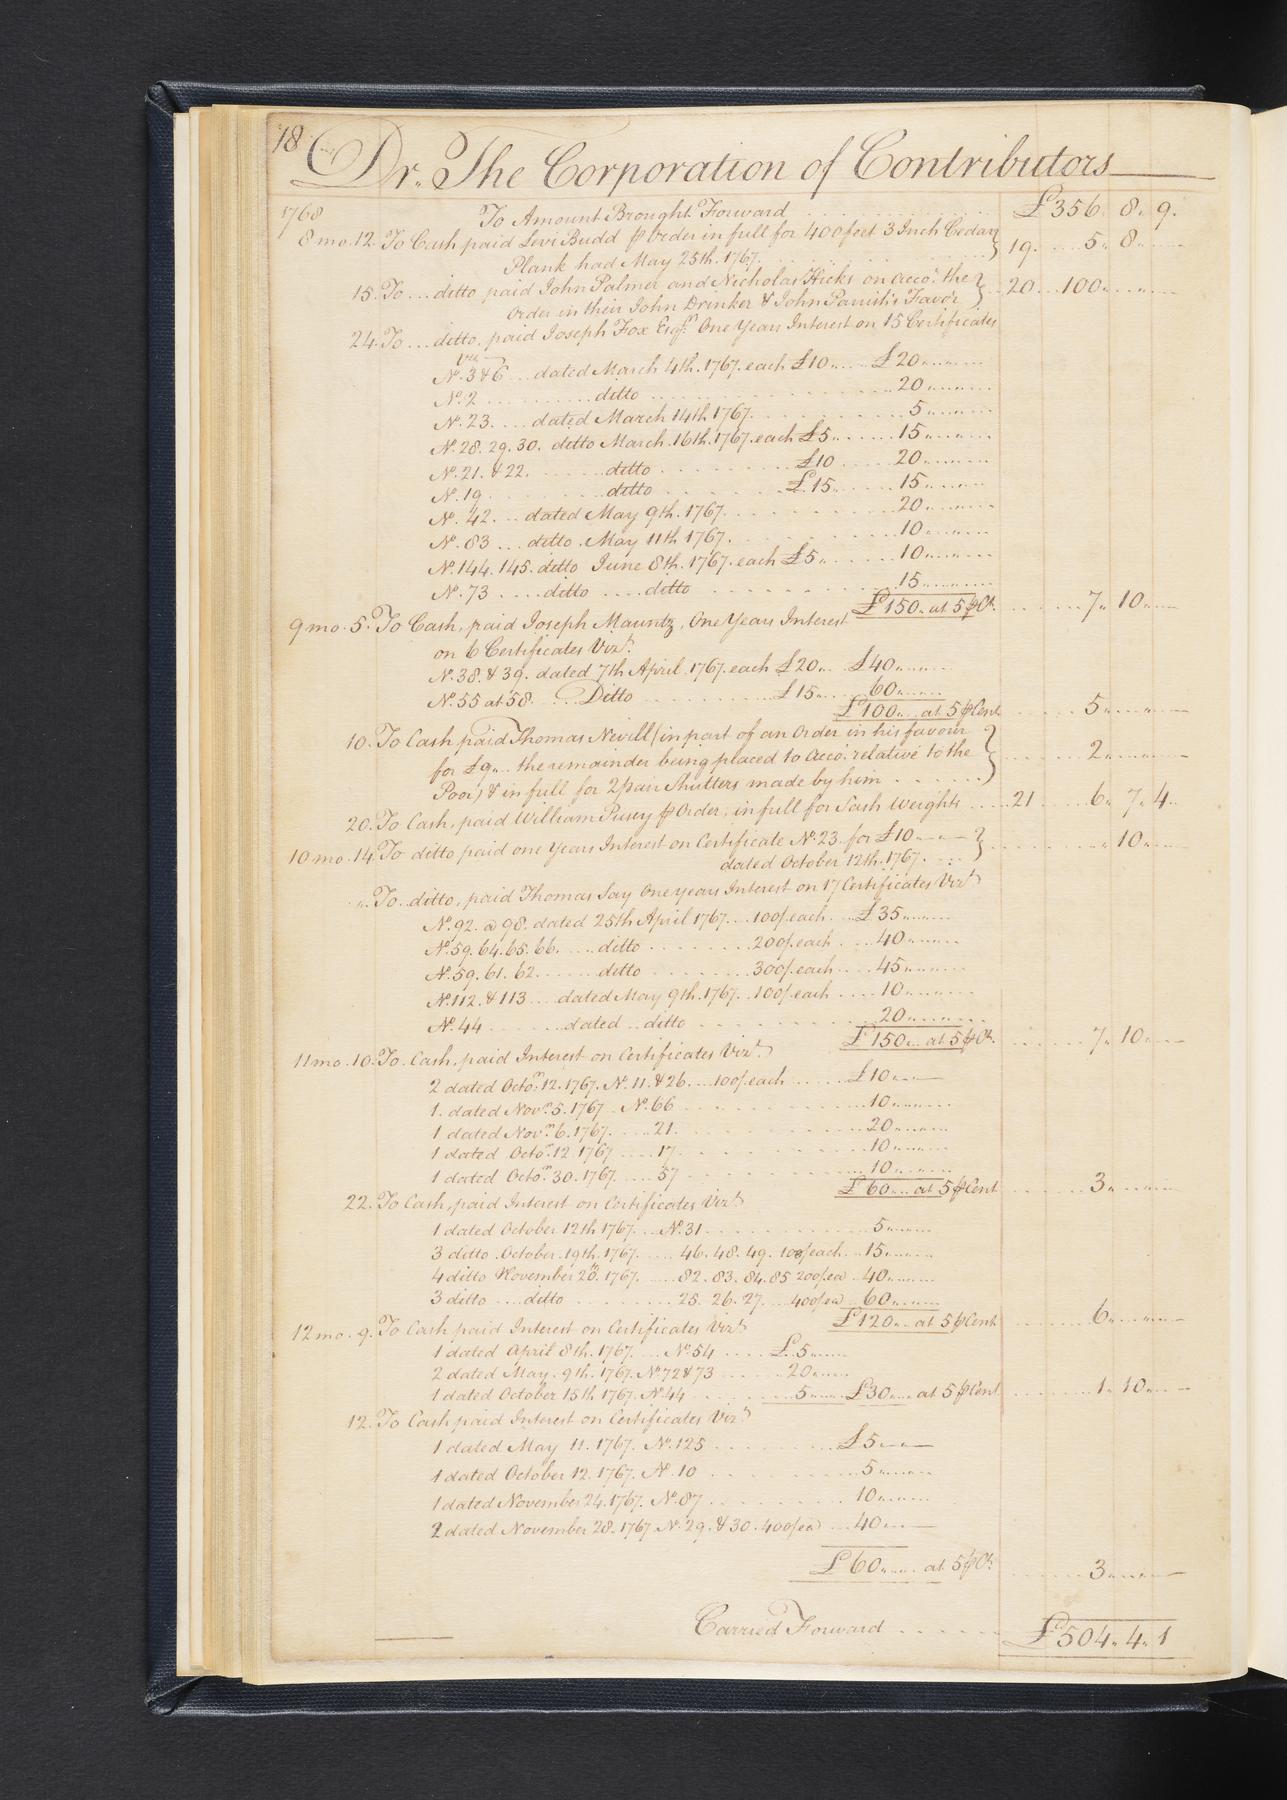 18
Dr. The Corporation of Contributors
1768 To Amount Brought Forward £356. 8. 9.
8 mo. 12. To Cash paid Levi Budd ⅌ Order in full for 400 feet 3 Inch Cedar
Plank had May 25th. 1767. 19. 5. 8.
15. To ditto paid John Palmer and Nicholas Hicks on acco.t the
Order in their John Drinker & John Parrish's Favor 20 100
24. To ditto, paid Joseph Fox Esqr. One Years Interest on 15 Certificates
Vizt
No. 3 & 6 dated March 4th. 1767. each £10 £20
No. 2 ditto 20
No. 23. dated March 14th 1767. 5
No. 28. 29. 30. ditto March 16th. 1767. each £5 15
No. 21. & 22. ditto £10 20
No. 19 ditto £15 15
No. 42. dated May 9th. 1767. 20
No. 83 ditto May 11th 1767. 10
No. 144. 145. ditto June 8th. 1767. each £5 10
No. 73 ditto ditto 15
£150. at 5 ⅌ Ct. 7. 10.
9 mo. 5. To Cash, paid Joseph Mauntz, One Years Interest
on 6 Certificates Vizt.
No. 38. & 39. dated 7th April 1767. each £20 £40
No. 55 at 58. Ditto £15 60
£100 at 5 ⅌ Cent 5
10. To Cash paid Thomas Nevill (in part of an Order in his favour
for £9 the remainder being placed to Acco.t relative to the
Poor) & in full for 2 pair Shutters made by him 2
20. To Cash, paid William Pusey ⅌ Order, in full for Sash Weights 21 6. 7. 4.
10 mo. 14. To ditto paid one Years Interest on Certificate No. 23. for £10
dated October 12th. 1767. 10
". To ditto, paid Thomas Say One years Interest on 17 Certificates Vizt
No. 92. @ 98. dated 25th April 1767. 100/. each £35
No. 59. 64. 65. 66. ditto 200/. each 40
No. 59. 61. 62. ditto 300/. each 45
No. 112. & 113 dated May 9th. 1767. 100/. each 10
No. 44 dated ditto 20
£150 at 5 ⅌ Ct. 7. 10
11 mo. 10. To Cash, paid Interest on Certificates Vizt.
2 dated Octor. 12. 1767. No. 11. & 26. 100/. each £10
1. dated Novr. 5. 1767. No. 66 10
1 dated Novr. 6. 1767. 21. 20
1 dated Octor. 12. 1767 17. 10
1 dated Octor. 30. 1767. 57 10
£60 at 5 ⅌ Cent 3
22. To Cash, paid Interest on Certificates Vizt
1 dated October 12th 1767. No. 31 5
3 ditto October 19th. 1767. 46. 48. 49. 100/ each 15
4 ditto November 28th. 1767. 82. 83. 84. 85 200/. ea 40
3 ditto ditto 25. 26. 27. 400/ ea 60
£120 at 5 ⅌ Cent 6
12 mo. 9. To Cash paid Interest on Certificates Vizt
1 dated April 8th. 1767. No. 54 £5
2 dated May 9th. 1767. No. 72 & 73 20
1 dated October 15th 1767. No. 44 5 £30 at 5 ⅌ Cent 1. 10
12. To Cash paid Interest on Certificates Vizt
1 dated May 11. 1767. No. 125 £5
1 dated October 12. 1767. No. 10 5
1 dated November 24. 1767. No. 87 10
2 dated November 28. 1767 No. 29. & 30. 400/ ea 40
£60 at 5 ⅌ Ct. 3
Carried Forward £504. 4. 1